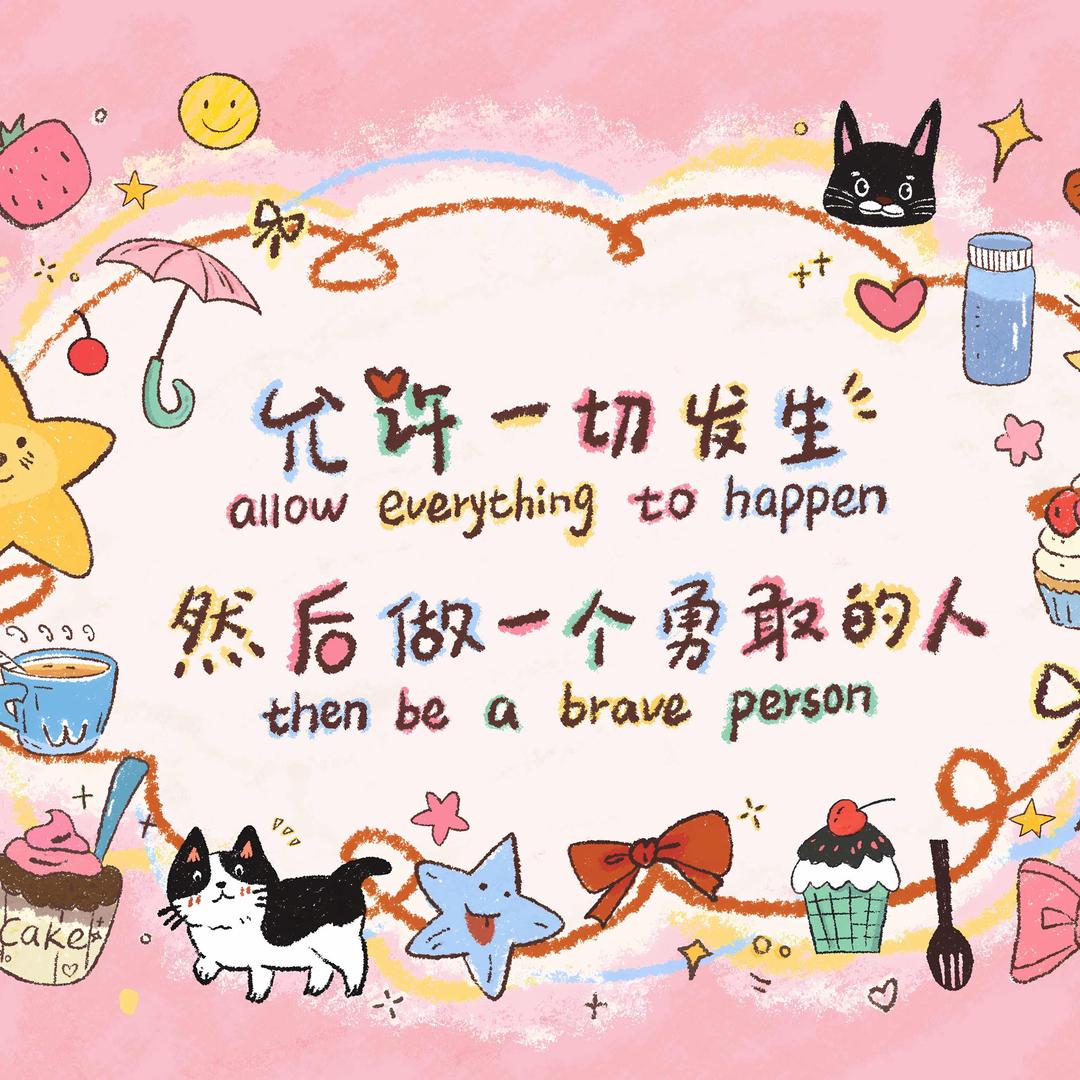 允许一切发生
allow everything to happen
然后做一个勇敢的人
then be a brave person
Cake